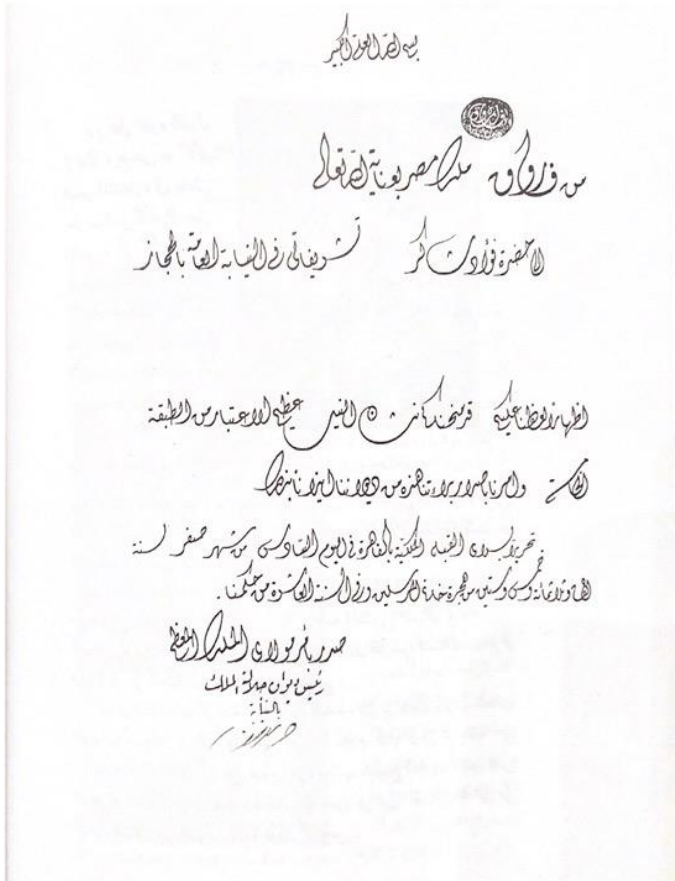 بسم الله العلى الكبير
من فاروق ملك مصر بعناية الله تعالى
إلى حضرة فؤاد شاكر تشريفاتى فى النيابة العامة بالحجاز
إظهارا لعطفنا عليكم قد منحناكم نشان النيل عظيم الاعتبار من الطبقة
الخامسة وأمرنا بإصدار براءتنا هذه من ديواننا إيذانا بذلك
تحريرا بسراى القبة الملكية بالقاهرة فى اليوم السادس من شهر صفر لسنة
ألف وثلاثمائة وخمس وستين من هجرة خاتم المرسلين وفى السنة العاشرة من حكمنا.
صدر بأمر مولاى الملك المعظم
رئيس ديوان جلالة الملك
بالنيابة